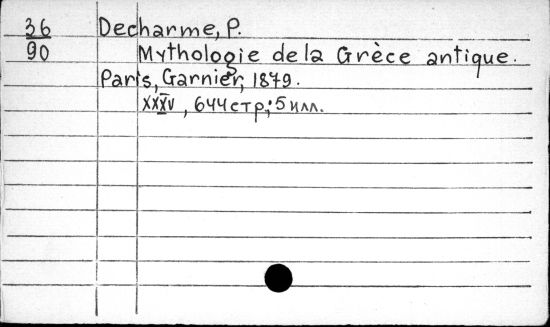 36 Decharme, P.
90 Mythologie de la Grèce antique.
Paris, Garnier, 1879.
XXXV, 644 стр.; 5 илл.